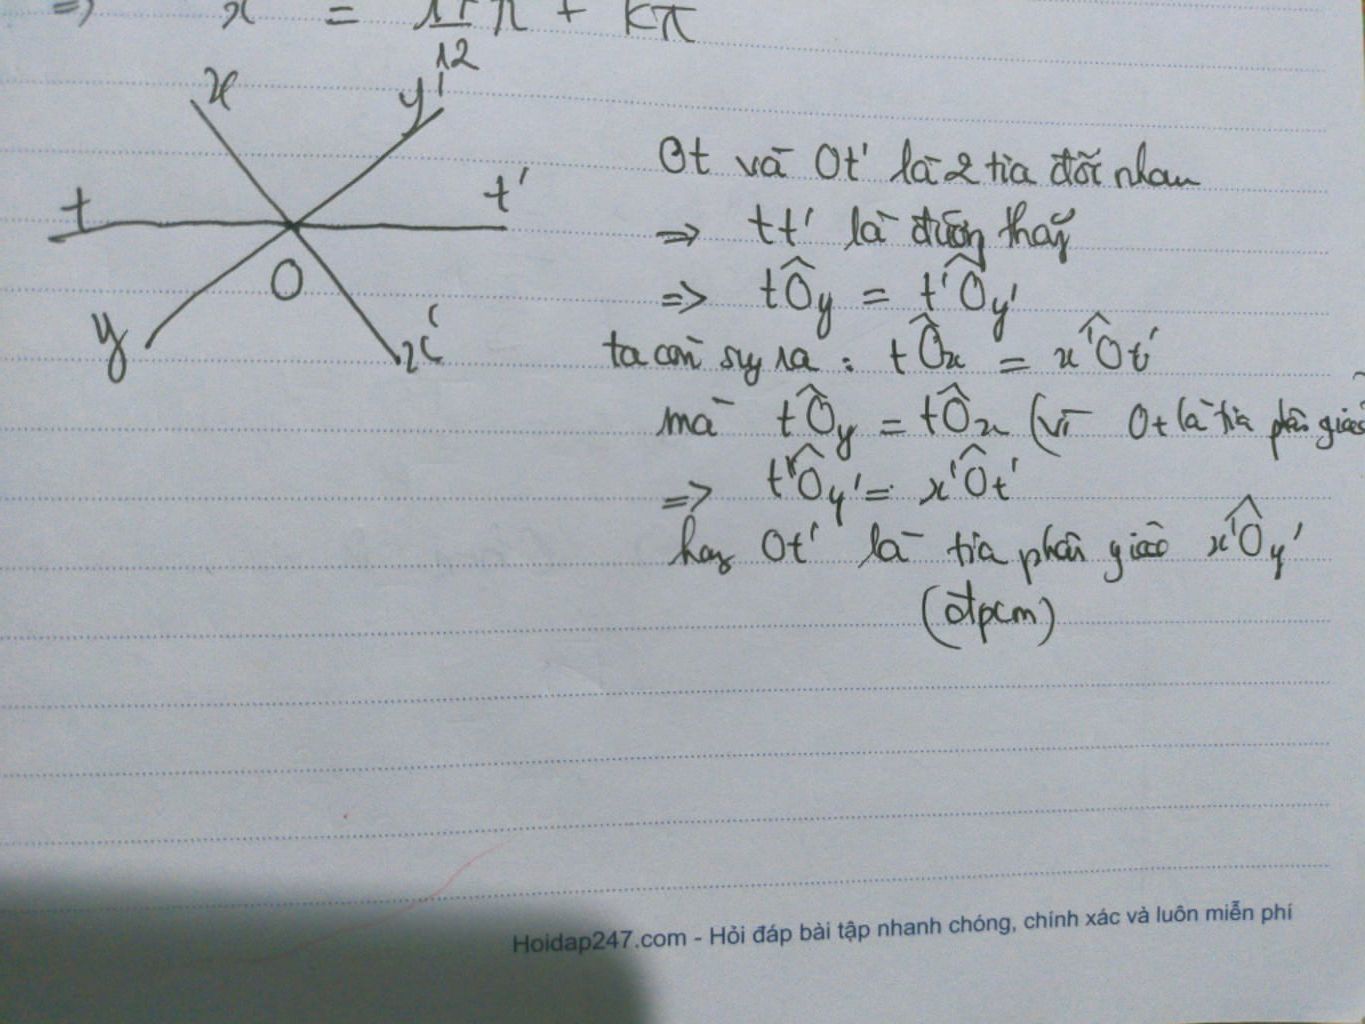 ⇒ x = 11/12 π + kπ
x
y'
t
t'
O
y
x'
Ot và Ot' là 2 tia đối nhau
⇒ tt' là đường thẳng
⇒ tÔy = t'Ôy'
ta còn suy ra : tÔx = x'Ôt'
mà tÔy = tÔx (vì Ot là tia phân giác
⇒ t'Ôy' = x'Ôt'
hay Ot' là tia phân giác x'Ôy'
(đpcm)
Hoidap247.com - Hỏi đáp bài tập nhanh chóng, chính xác và luôn miễn phí